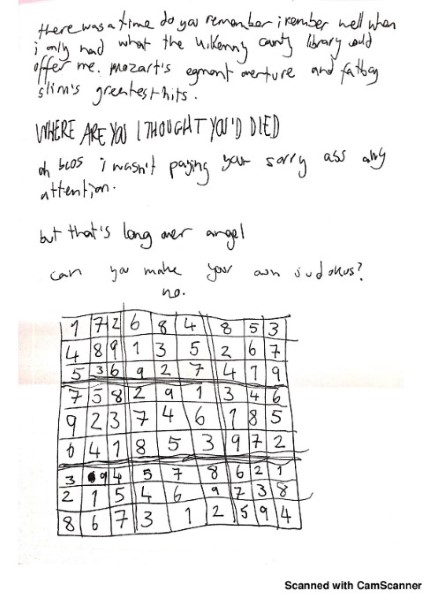 there was a time do you remember i remember well when
i only had what the kilkenny county library could
offer me. mozart's egmont overture and fatboy
slim's greatest hits.
WHERE ARE YOU I THOUGHT YOU'D DIED
oh bcos i wasn't paying your sorry ass any
attention.
but that's long over angel
can you make your own sudokus?
no.
1 7 2 6 8 4 8 5 3
4 8 9 1 3 5 2 6 7
5 3 6 9 2 7 4 1 9
7 5 8 2 9 1 3 4 6
9 2 3 7 4 6 1 8 5
6 4 1 8 5 3 9 7 2
3 9 4 5 7 8 6 2 1
2 1 5 4 6 9 7 3 8
8 6 7 3 1 2 5 9 4
Scanned with CamScanner